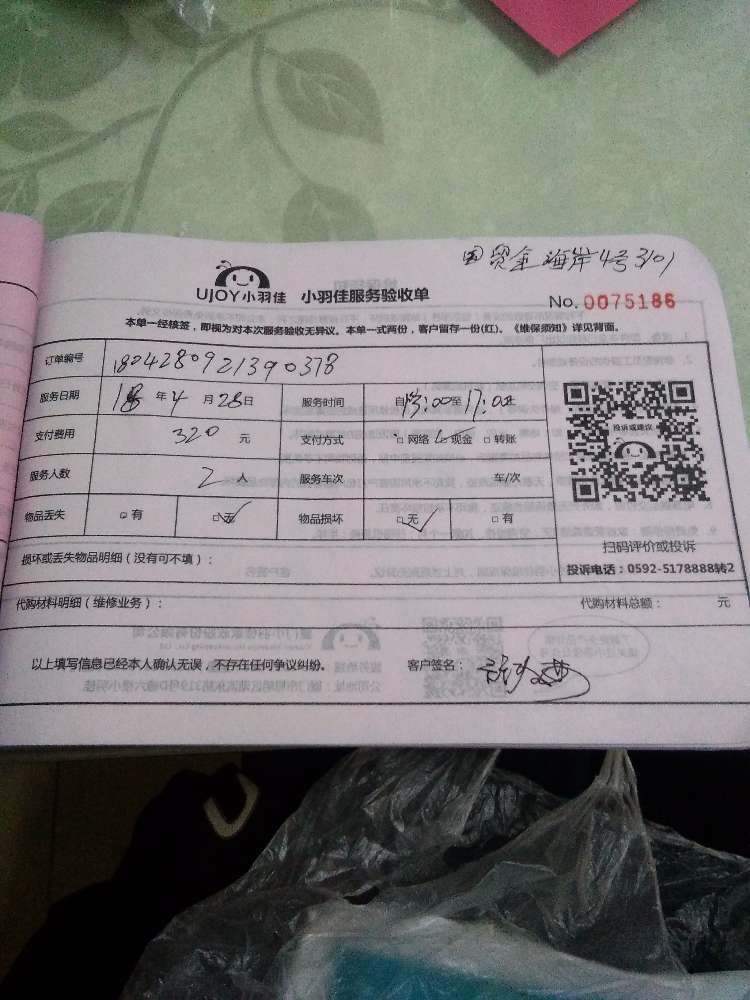 国贸金海岸4号3101
UJOY小羽佳 小羽佳服务验收单
No. 0075186
本单一经核签，即视为对本次服务验收无异议。本单一式两份，客户留存一份(红)。《维保须知》详见背面。
订单编号 180428092139037B
服务日期 18 年 4 月 28 日 服务时间
支付费用 320 元 支付方式 □ 网络 □ 现金 □ 转账
服务人数 2 人 服务车次 车/次
物品丢失 □ 有 □无 物品损坏 □无 □ 有
投诉或建议
扫码评价或投诉
投诉电话：0592-5178888转2
损坏或丢失物品明细（没有可不填）：
代购材料明细（维修业务）： 代购材料总额： 元
以上填写信息已经本人确认无误，不存在任何争议纠纷。 客户签名：